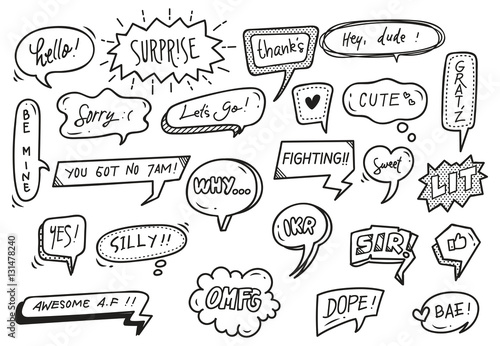 hello!
SURPRISE
thank's
Hey, dude!
GRATZ
BE MINE
Sorry :(
Let's Go!
CUTE
YOU GOT NO JAM!
WHY...
FIGHTING!!
Sweet
LIT
YES!
SILLY!!
IKR
SIR!
AWESOME A.F !!
OMFG
DOPE!
BAE!
131478240